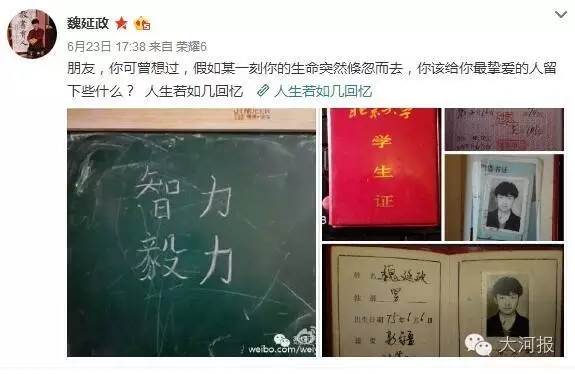 魏延政
6月23日 17:38 来自 荣耀6
朋友，你可曾想过，假如某一刻你的生命突然倏忽而去，你该给你最挚爱的人留
下些什么？ 人生若如几回忆 人生若如几回忆
教书
育人
智力
毅力
weibo.com/wei
学
生
证
姓名 魏延政
性别 男
出生日期 75年6月6日
新疆
大河报